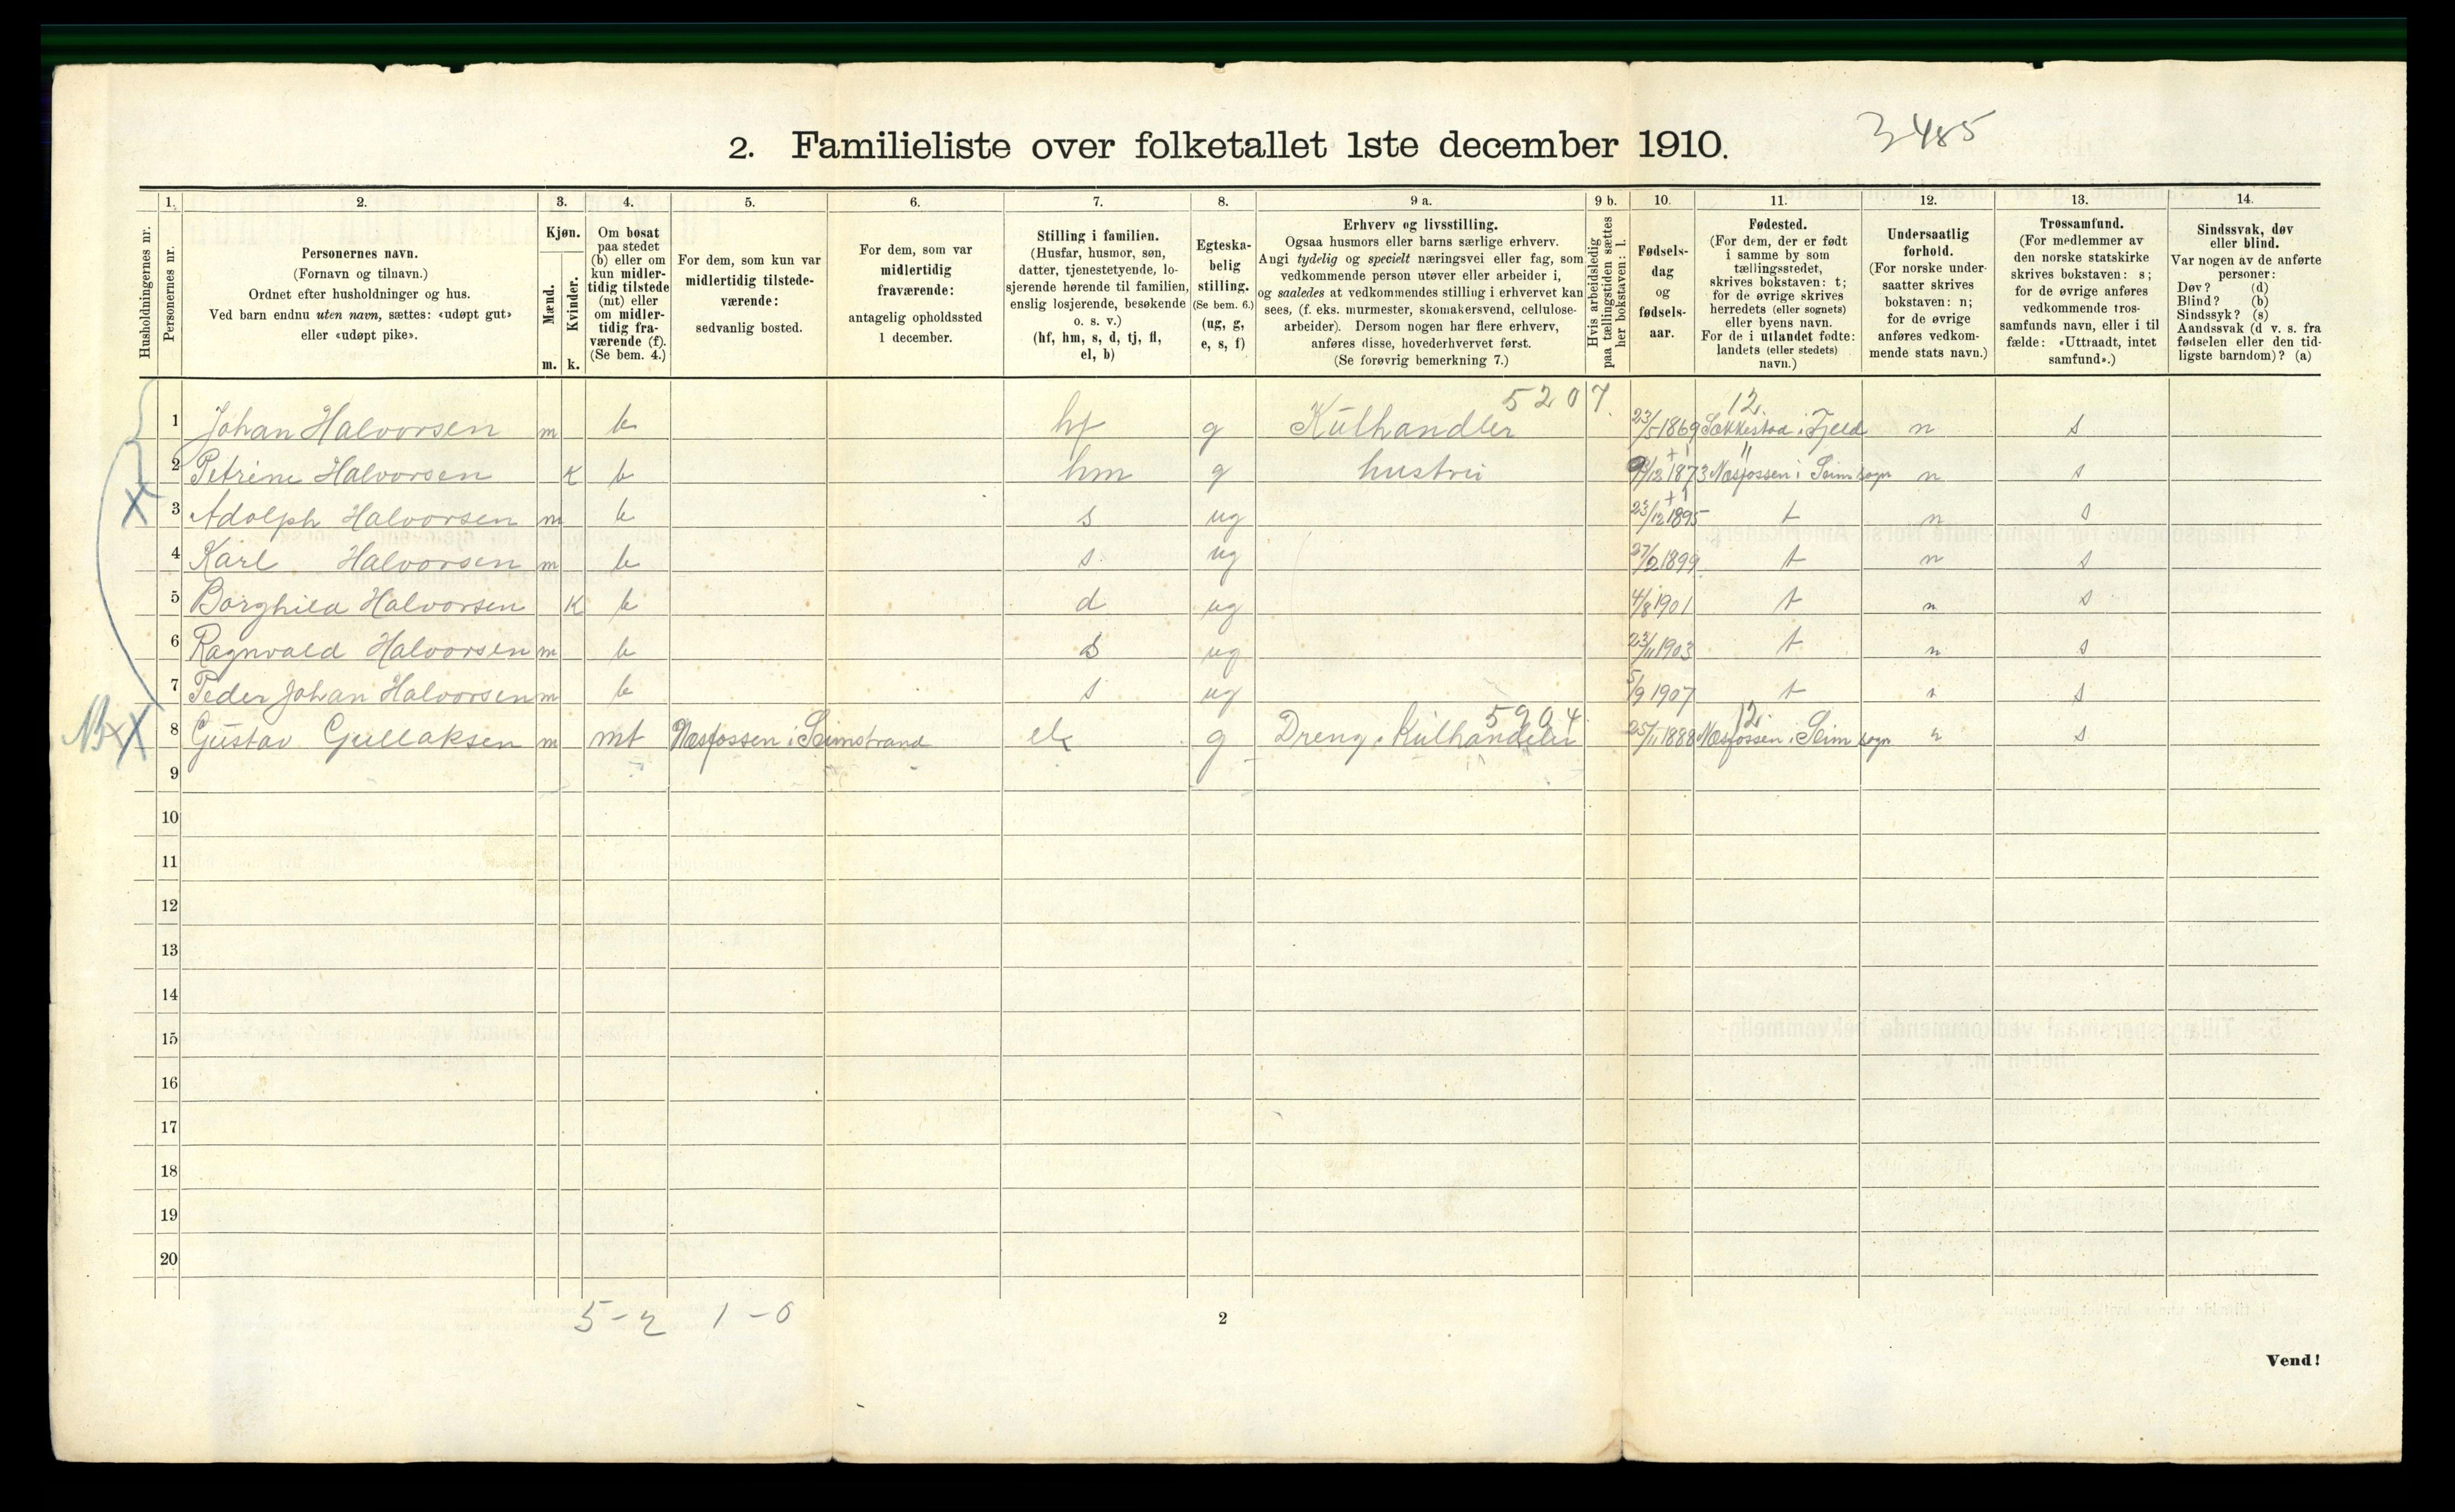 3485
2. Familieliste over folketallet 1ste december 1910.
Husholdningernes nr.
1. Personernes nr.
2. Personernes navn.
(Fornavn og tilnavn.)
Ordnet efter husholdninger og hus.
Ved barn endnu uten navn, sættes: «udøpt gut»
eller «udøpt pike».
3. Kjøn.
Mænd. m.
Kvinder. k.
4. Om bosat
paa stedet
(b) eller om
kun midler-
tidig tilstede
(mt) eller
om midler-
tidig fra-
værende (f).
(Se bem. 4.)
5. For dem, som kun var
midlertidig tilstede-
værende:
sedvanlig bosted.
6. For dem, som var
midlertidig
fraværende:
antagelig opholdssted
1 december.
7. Stilling i familien.
(Husfar, husmor, søn,
datter, tjenestetyende, lo-
sjerende hørende til familien,
enslig losjerende, besøkende
o. s. v.)
(hf, hm, s, d, tj, fl,
el, b)
8. Egteska-
belig
stilling.
(Se bem. 6.)
(ug, g,
e, s, f)
9 a. Erhverv og livsstilling.
Ogsaa husmors eller barns særlige erhverv.
Angi tydelig og specielt næringsvei eller fag, som
vedkommende person utøver eller arbeider i,
og saaledes at vedkommendes stilling i erhvervet kan
sees, (f. eks. murmester, skomakersvend, cellulose-
arbeider). Dersom nogen har flere erhverv,
anføres disse, hovederhvervet først.
(Se forøvrig bemerkning 7.)
9 b. Hvis arbeidsledig
paa tællingstiden sættes
her bokstaven: l.
10. Fødsels-
dag
og
fødsels-
aar.
11. Fødested.
(For dem, der er født
i samme by som
tællingsstedet,
skrives bokstaven: t;
for de øvrige skrives
herredets (eller sognets)
eller byens navn.
For de i utlandet fødte:
landets (eller stedets)
navn.)
12. Undersaatlig
forhold.
(For norske under-
saatter skrives
bokstaven: n;
for de øvrige
anføres vedkom-
mende stats navn.)
13. Trossamfund.
(For medlemmer av
den norske statskirke
skrives bokstaven: s;
for de øvrige anføres
vedkommende tros-
samfunds navn, eller i til
fælde: «Uttraadt, intet
samfund».)
14. Sindssvak, døv
eller blind.
Var nogen av de anførte
personer:
Døv? (d)
Blind? (b)
Sindssyk? (s)
Aandssvak (d v. s. fra
fødselen eller den tid-
ligste barndom)? (a)
5207. 12.
1 Johan Halvorsen m b hf g Kulhandler 23/5 1869 i Fjeld n s
2 Petrine Halvorsen k b hm g hustru 9/12 1873 Næsfossen i Seim sogn n s
X 3 Adolph Halvorsen m b s ug 23/12 1895 t n s
4 Karl Halvorsen m b s. ug 27/2 1899 t n s
5 Borghild Halvorsen k b d ug 4/8 1901 t n s
6 Ragnvald Halvorsen m b s ug 23/11 1903 t n s
7 Peder Johan Halvorsen m b s ug 5/9 1907 t n s
5904. 12.
8 Gustav Gullaksen m mt Næsfossen i Seimstrand el g Dreng. Kulhandler 25/11 1888 Næsfossen i Seim sogn n s
9
10
11
12
13
14
15
16
17
18
19
20
5 - 2 1 - 0
2
Vend!